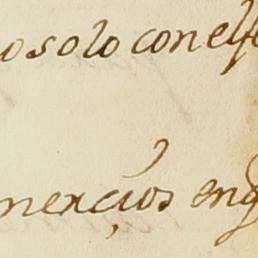 o solo con el
merçios eng